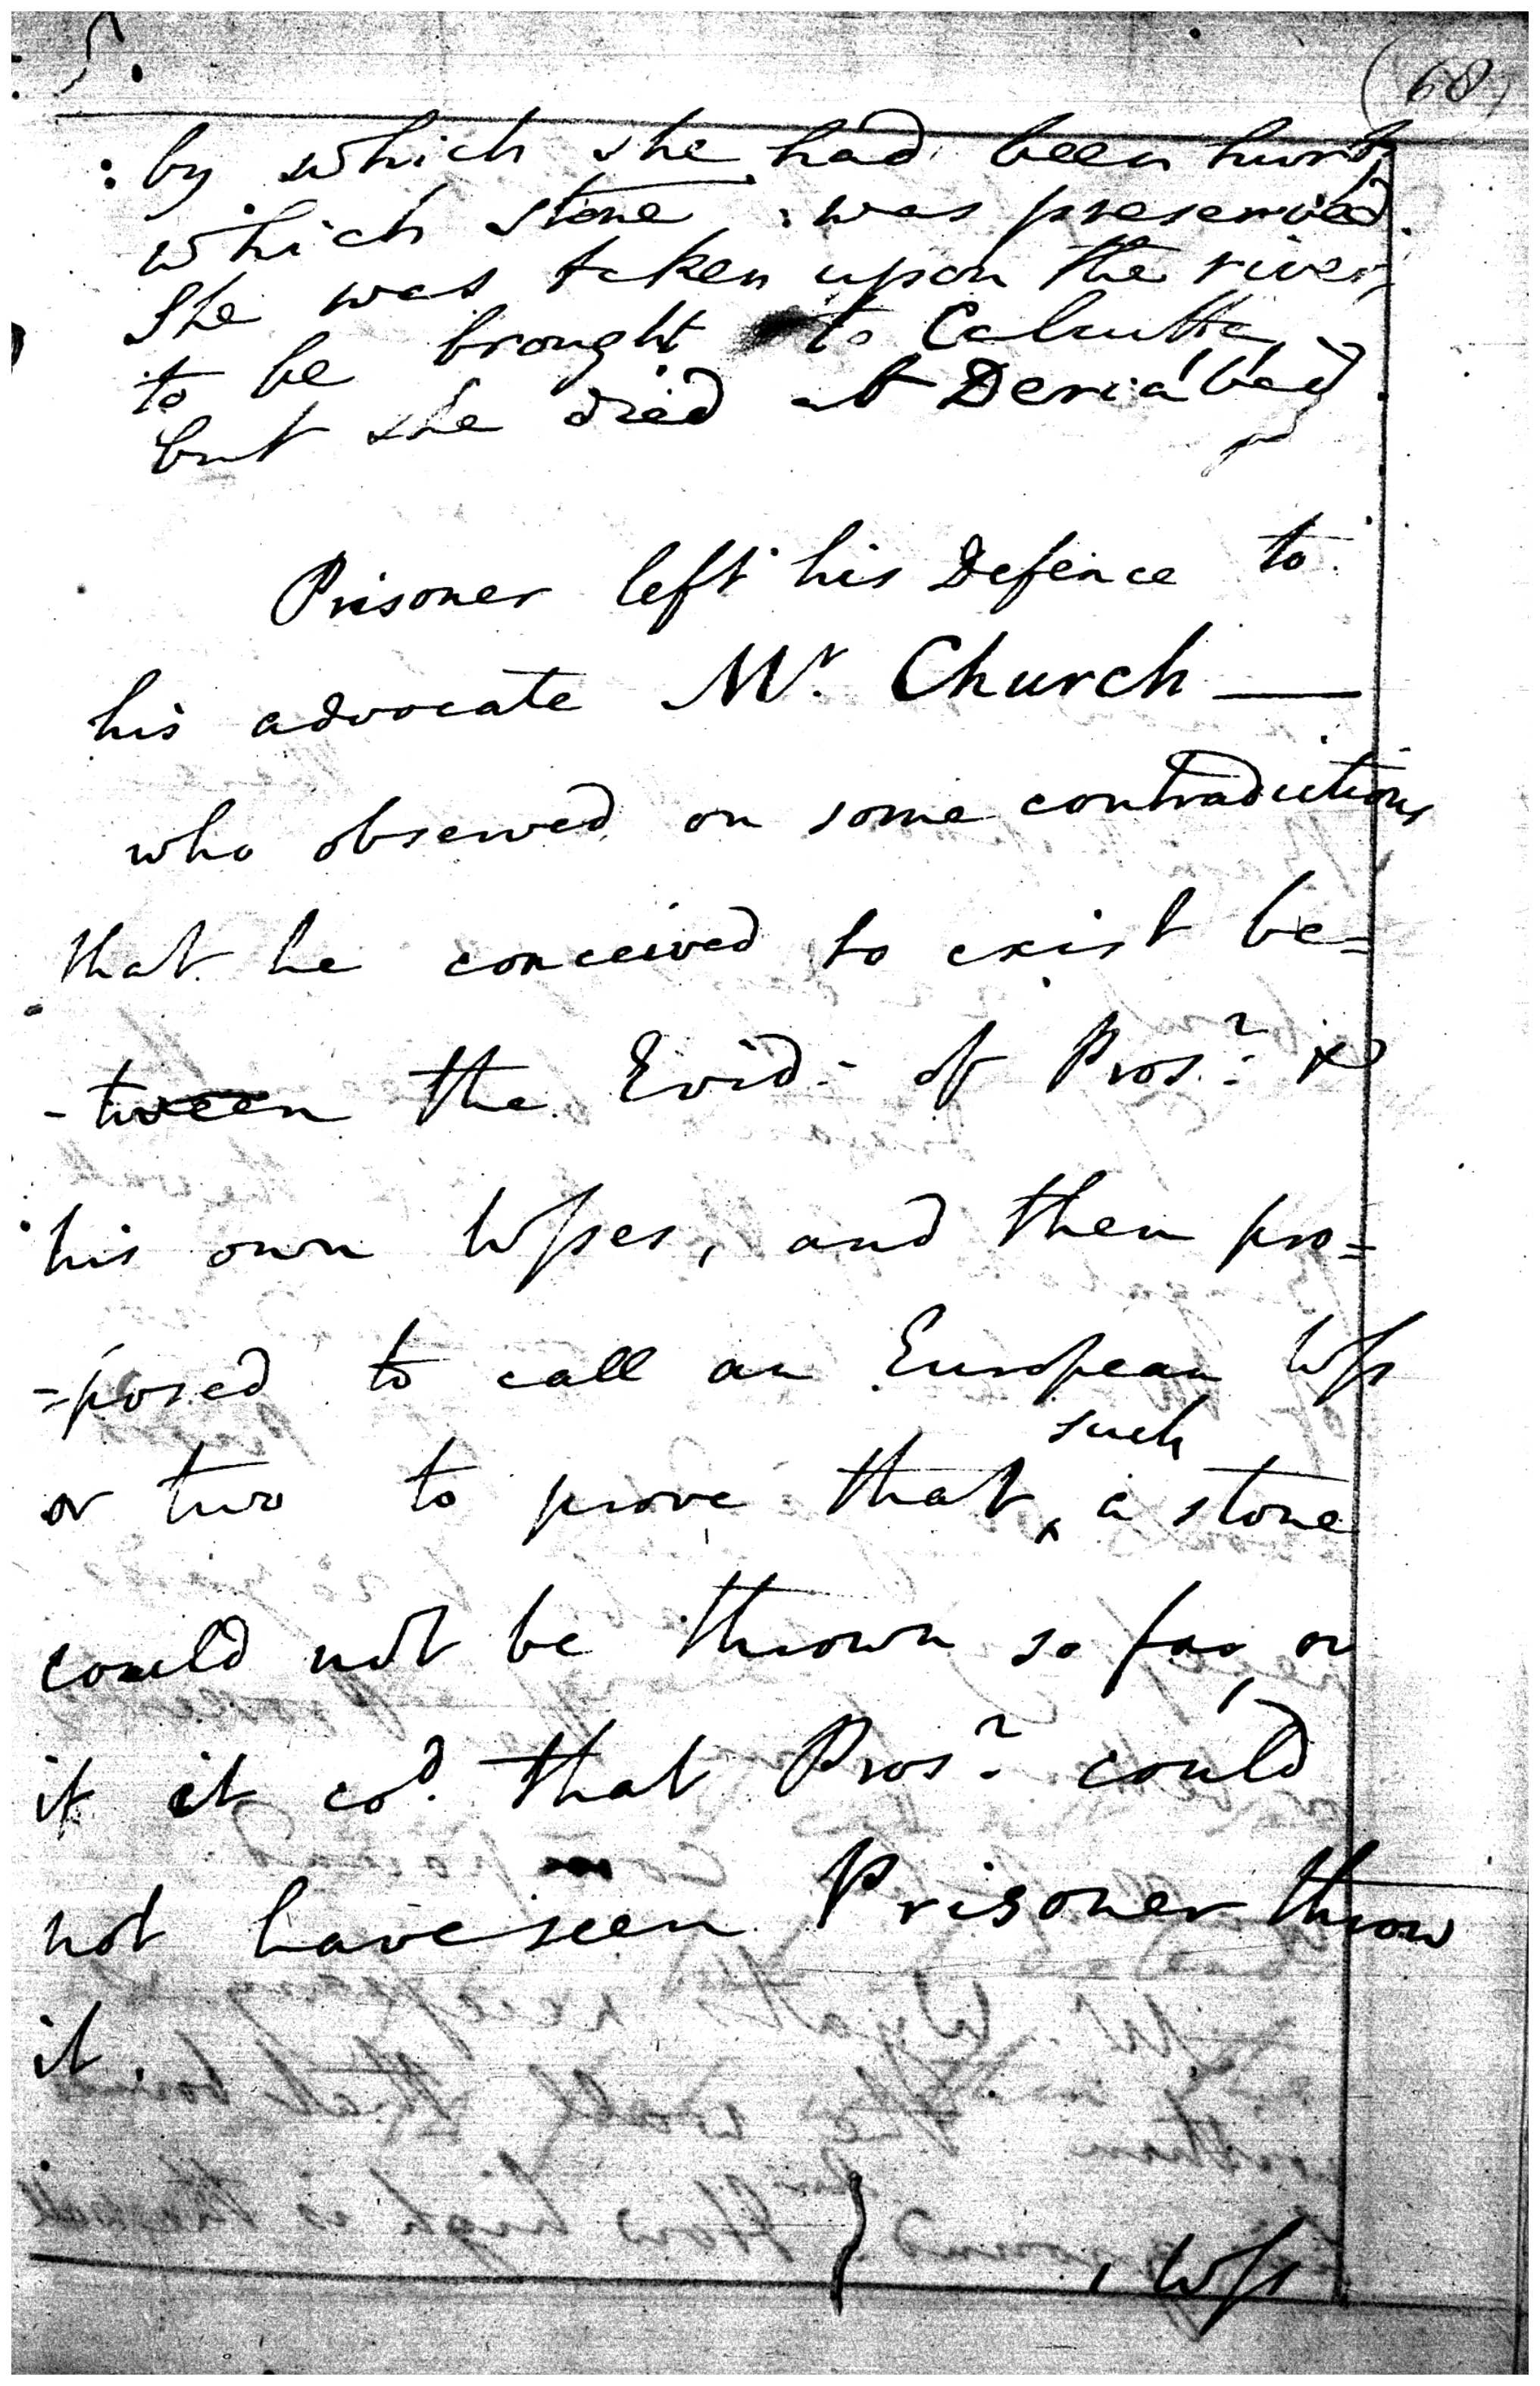 5.
(68)
by which she had been hurt,
which stone was preserved.
She was taken upon the river,
to be brought to Calcutta,
but she died at Deria'bad
Prisoner left his Defence to
his advocate Mr. Church —
who observed on some contradictions
that he conceived to exist be=
-tween the Evid: of Pros.r &
his own Wsses, and then pro=
=posed to call an European Wss
or two to prove that such a stone
could not be thrown so far, or
if it cod. that Pros.r could
not have seen Prisoner throw
it.
1 Wss